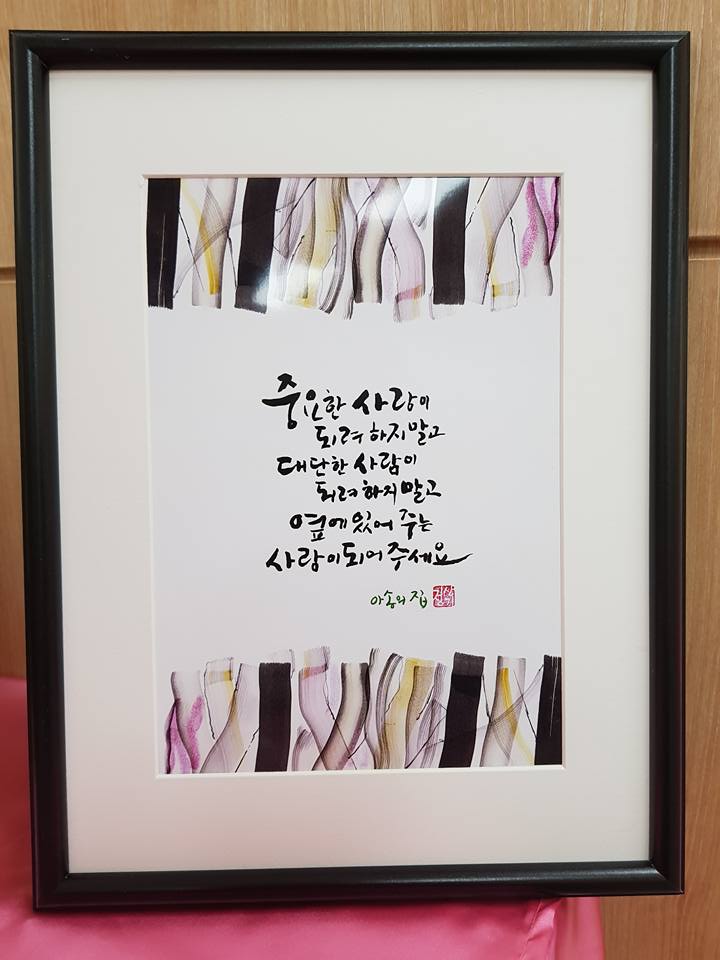 중요한 사람이
되려 하지말고
대단한 사람이
되려하지말고
옆에 있어 주는
사람이되어 주세요
아송의 집